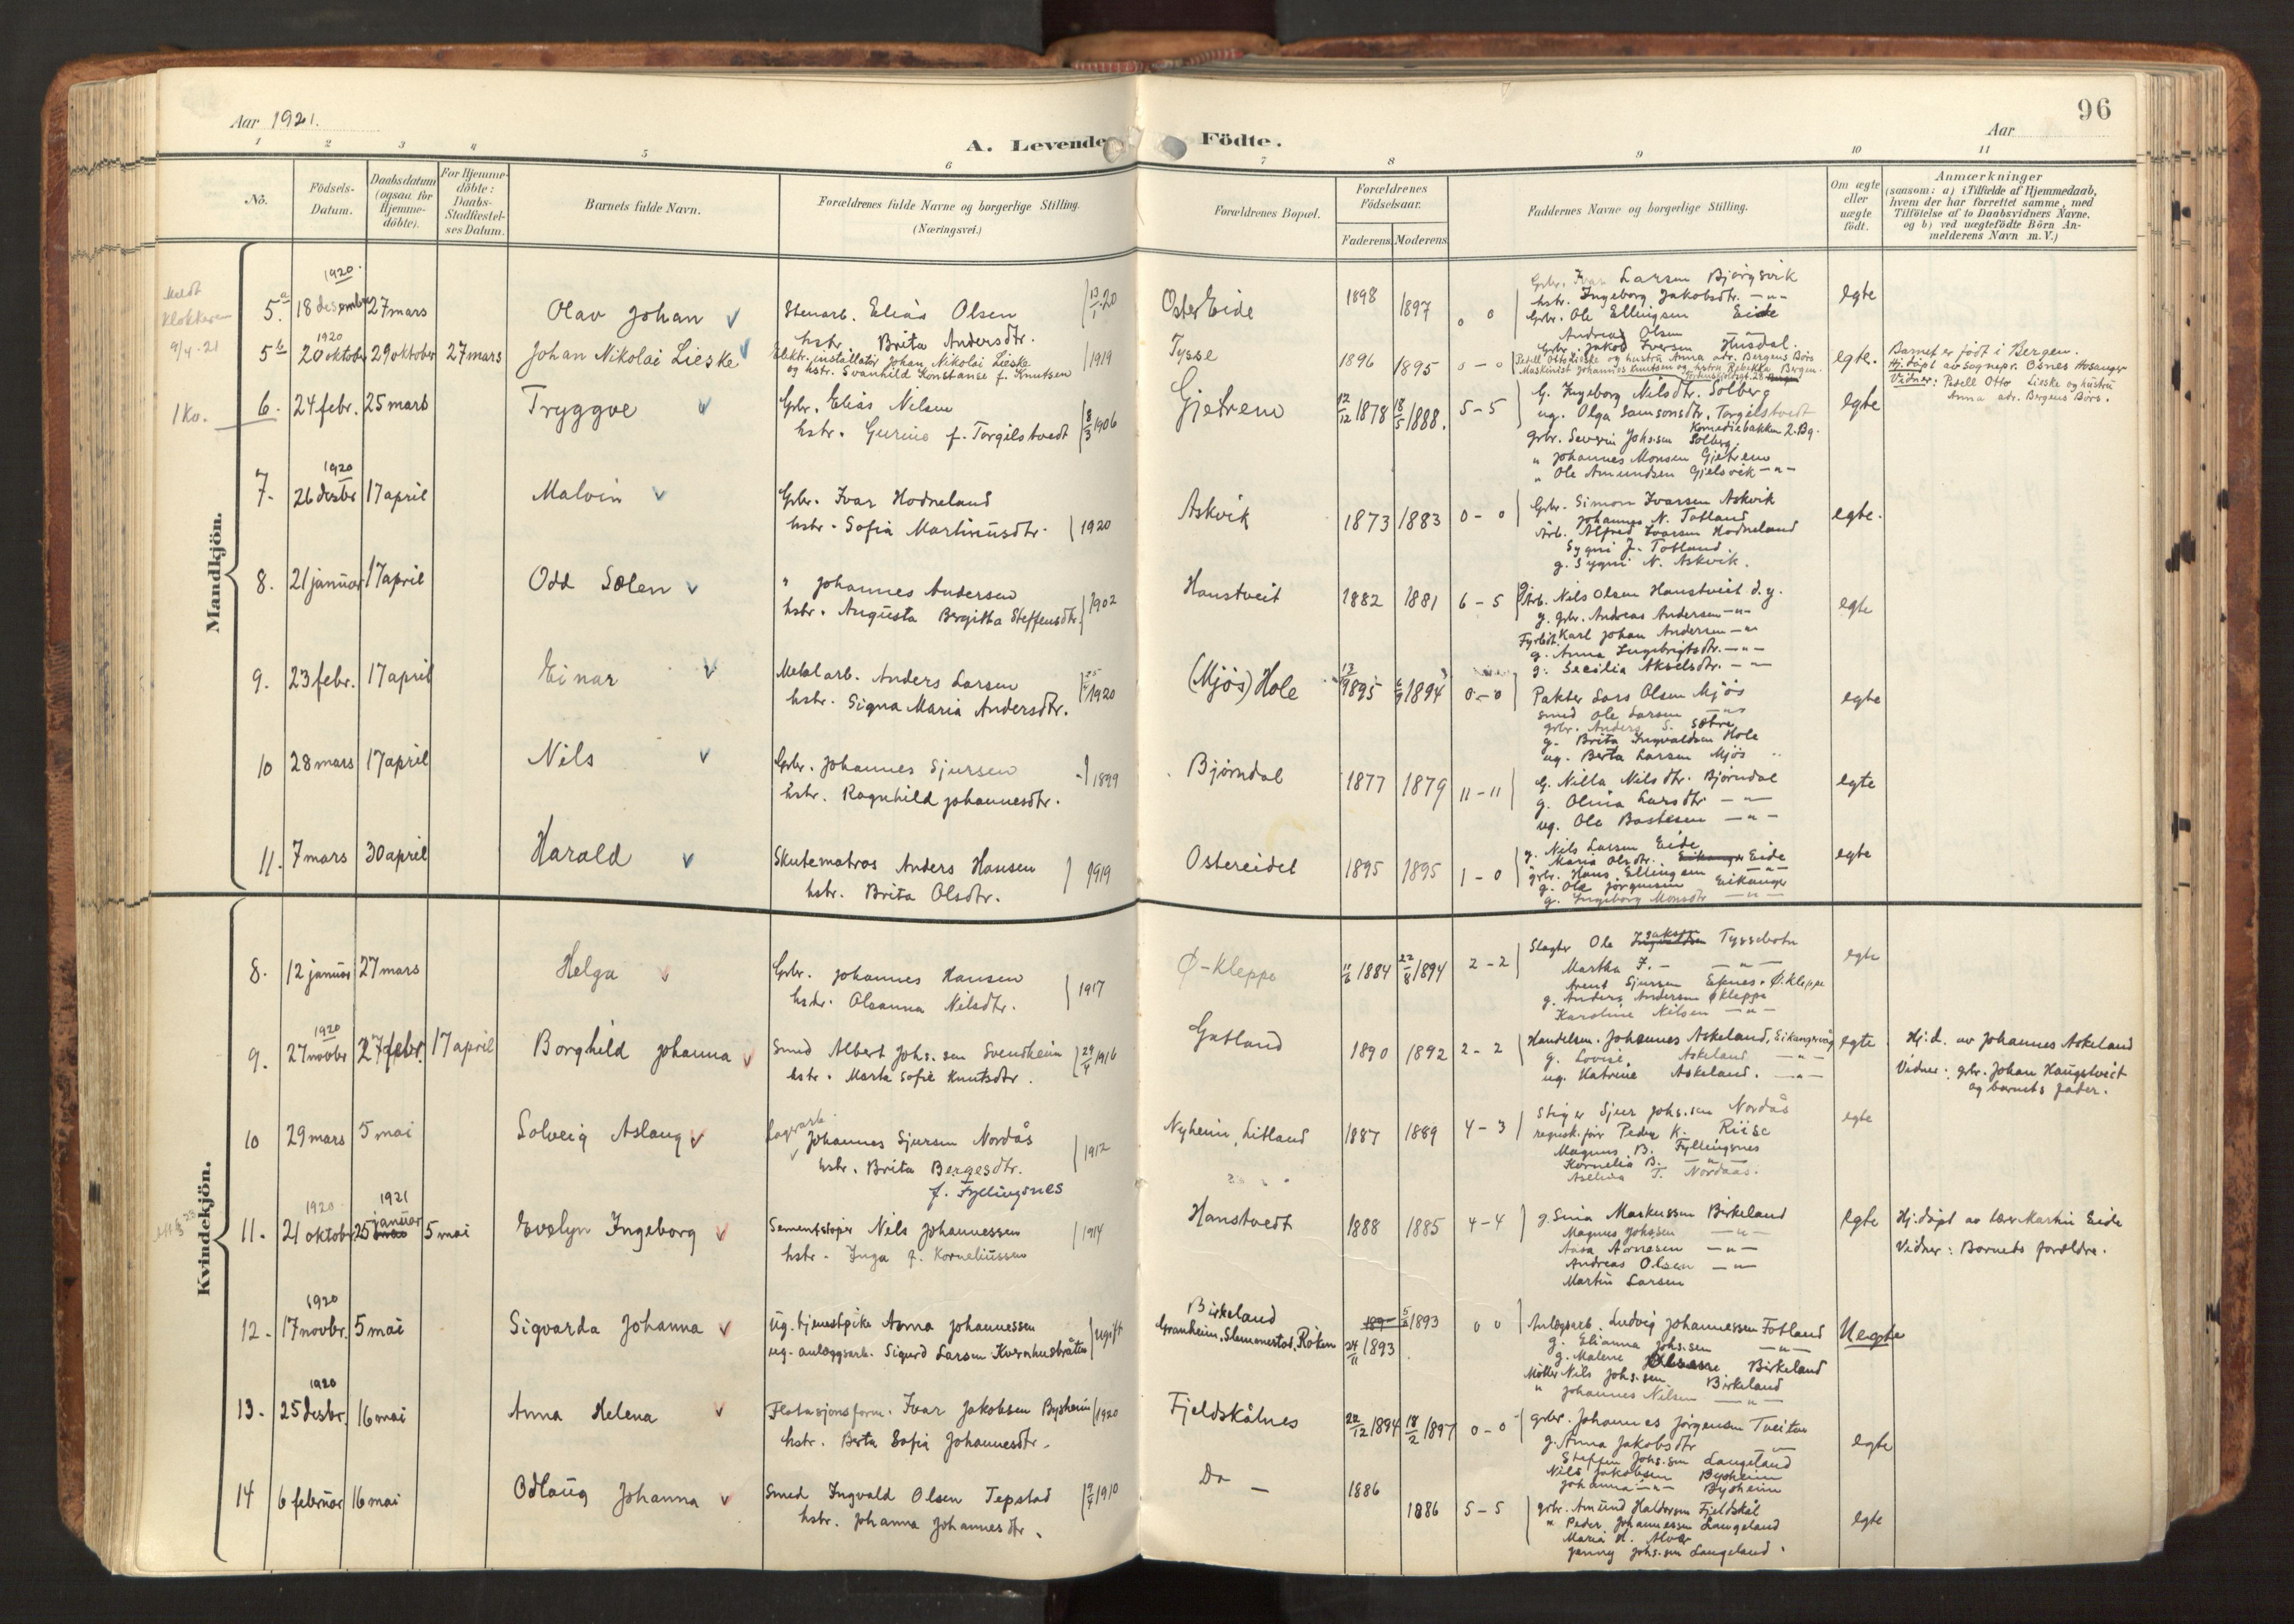 96
Aar 1921.
A. Levende Födte.
Aar
1 2 3 4 5 6 7 8 9 10 11
No.
Födsels-
Datum.
Daabsdatum
(ogsaa for
Hjemme-
döbte).
For Hjemme-
döbte:
Daabs-
Stadfæstel-
ses Datum.
Barnets fulde Navn.
Forældrenes fulde Navne og borgerlige Stilling.
(Næringsvei.)
Forældrenes Bopæl.
Forældrenes
Födselsaar.
Faderens. Moderens.
Faddernes Navne og borgerlige Stilling.
Om ægte
eller
uægte
födt.
Anmærkninger
(saasom: a) i Tilfælde af Hjemmedaab,
hvem der har forrettet samme, med
Tilföielse af to Daabsvidners Navne,
og b) ved uægtefödte Börn An-
melderens Navn m. V.)
Mandkjön.
Meldt
Klokkeren
9/4-21
1920
5a 18 desembr 27 mars
Olav Johan
Stenarb. Elias Olsen
hstr. Brita Andersdtr.
Oster Eide
1898 1897 0 0
Grbr. Ivar Larsen Bjørgsvik
hstr. Ingeborg Jakobsdtr. -"-
Grbr. Ole Ellingsen Eide
Andreas Olsen -"-
Grbr. Jakob Iversen Husdal.
egte
1920
5b 20 oktober 29 oktober 27 mars
Johan Nikolai Lieske
Elektr. installatør Johan Nikolai Lieske
og hstr. Svanhild Konstanse f. Knutsen
1919
Tysse
1896 1895 0-0
Pedell Otto Lieske og hustru Anna adr. Bergens Börs
Maskinist Johannes Knutsen og hstru Rebekka Bergen
egte.
Barnet er födt i Bergen.
Hj. döpt av Sognepr. Osnes Hosanger
Vidner: Pedell Otto Lieske og hustru
Anna adr. Bergens Börs.
1 Ko.
6. 24 febr. 25 mars
Tryggve
Grbr. Elias Nilsen
hstr. Gurine f. Torgilstvedt
8/3 1906
Gjetrem
12/12 1878 18/5 1888. 5-5
G. Ingeborg Nilsdtr. Solberg
ug. Olga Samsonsdtr. Torgilstvedt
Komediebakken 2. Bg.
grbr. Severin Johs.sen Solberg.
" Johannes Monsen Gjetrem
" Ole Amundsen Gjelsvik -"-
egte
1920
7. 26 desbr 17 april
Malvin
Grbr. Ivar Hodneland
hstr. Sofia Martinusdtr.
1920
Askvik
1873 1883 0-0
Grbr. Simon Ivarsen Askvik
Johannes N. Totland
Arb. Alfred Ivarsen Hodneland
Sygni J. Totland.
g. Sygni N. Askvik.
egte.
8. 21 januar 17 april
Odd Solen
" Johannes Andersen
hstr. Augusta Bergitha Steffensdtr.
1902
Hanstveit
1882 1881 6-5
Arb. Nils Olsen Hanstveit d.y.
g. grbr. Andreas Andersen -"-
Fyrböt. Karl Johan Andersen -"-
g. Anna Ingebrigtsdtr. -"-
g. Secilia Akselsdtr. -"-
egte
9. 23 febr. 17 april
Einar
Metalarb. Anders Larsen
hstr. Signa Maria Andersdtr.
1920
(Mjös) Hole
1895 1894 0-0
Pakter Lars Olsen Mjös
Smed Ole Larsen -"-
grbr. Anders S. Sætre
g. Brita Ingvaldsen Hole
ug. Berta Larsen Mjös
egte
10 28 mars 17 april
Nils
Grbr. Johannes Sjursen
hstr. Ragnhild Johannesdtr.
1899
Björndal
1877 1879 11-11
G. Nilla Nilsdtr. Björndal
g. Olina Larsdtr -"-
ug. Ole Bastesen -"-
egte
11. 7 mars 30 april
Harald
Skutematros Anders Hansen
hstr. Brita Olsdtr.
1919
Ostereidet
1895 1895 1-0
g. Nils Larsen Eide
Maria Olsdtr. Eikanger Eide
grbr. Hans Ellingsen -"-
g. Ole Jörgensen Eikanger
g. Ingeborg Monsdtr -"-
egte
Kvindekjön.
8. 12 januar 27 mars
Helga
Grbr. Johannes Hansen
hstr. Oleanna Nilsdtr.
1917
Ø-Kleppe
11/6 1884 22/8 1894 2-2
Slagter Ole Ingvaldsen Tyssebotn
Martha J. - -"-
Arent Sjursen Espnes. Ø.Kleppe
g. Anders Andersen Ø Kleppe
Karoline Nilsen -"-
egte
1920
9. 27 novbr 27 febr. 17 april
Borghild Johanna
Smed Albert Johs.sen Svendheim
hstr. Marta Sofie Knutsdtr.
1916
Gatland
1890 1892 2-2
Handelsm. Johannes Askeland, Eikangervåg
g. Lovise Askeland -"-
ug. Katrine Askeland. -"-
egte
Hj.d. av Johannes Askeland
Vidner: grbr. Johan Haugstveit
og barnets fader.
10 29 mars 5 mai
Solveig Aslaug
Johannes Sjursen Nordås
hstr. Brita Bergesdtr.
f. Fyllingsnes
1912
Nyheim, Litland
1887 1889 4-3
Stiger Sjur Johs.sen Nordås
regnsk.för Peder K. Riise
Magnus B. Fyllingsnes
Kornelia B. -"-
Aselina T. Nordaas.
egte
1920 1921
11. 21 oktobr 25 januar 5 mai
Evelyn Ingeborg
Sementstöper Nils Johannessen
hstr. Inga f. Korneliussen
1914
Hanstvedt
1888 1885 4-4
g. Sina Markussen Birkeland
Magnus Johssen -"-
Aasa Aarnesen -"-
Andreas Olsen -"-
Martin Larsen
egte
Hj.döpt av lær. Martin Eide
Vidner: Barnets forældre.
1920
12. 17 novbr. 5 mai
Sigvarda Johanna
ug. tjenestpike Anna Johannessen
ug. anlægsarb. Sigurd Larsen Kvernhusbråten
ugift
Birkeland
Granheim, Slemmestad, Röken
5/5 1893 0 0
24/11 1893
Anlægsarb. Ludvig Johannessen Fotland
g. Elianna Johs.sen -"-
g. Malene Birkeland
Möller Nils Johs.sen Birkeland
" Johannes Nilsen -"-
Uegte
1920
13. 25 desbr. 16 mai
Anna Helena
Flotasjonsform. Ivar Jakobsen Bysheim
hstr. Berta Sofia Johannesdtr.
1920
Fjeldskålnes
22/12 1894 18/2 1897 0-0
grbr. Johannes Jörgensen Tveiten
g. Anna Jakobsdtr -"-
Steffen Johs.sen Langeland
Nils Jakobsen Bysheim
Johanna -"- Bysheim
egte
14 6 februar 16 mai
Odlaug Johanna
Smed Ingvald Olsen Tepstad
hstr. Johanna Johannesdtr.
1910
Do -
1886 1886 5-5
grbr. Amund Haldorsen Fjeldskål
" Peder Johannessen Langeland
Maria H. Alver
Jenny Johs.sen Langeland.
egte